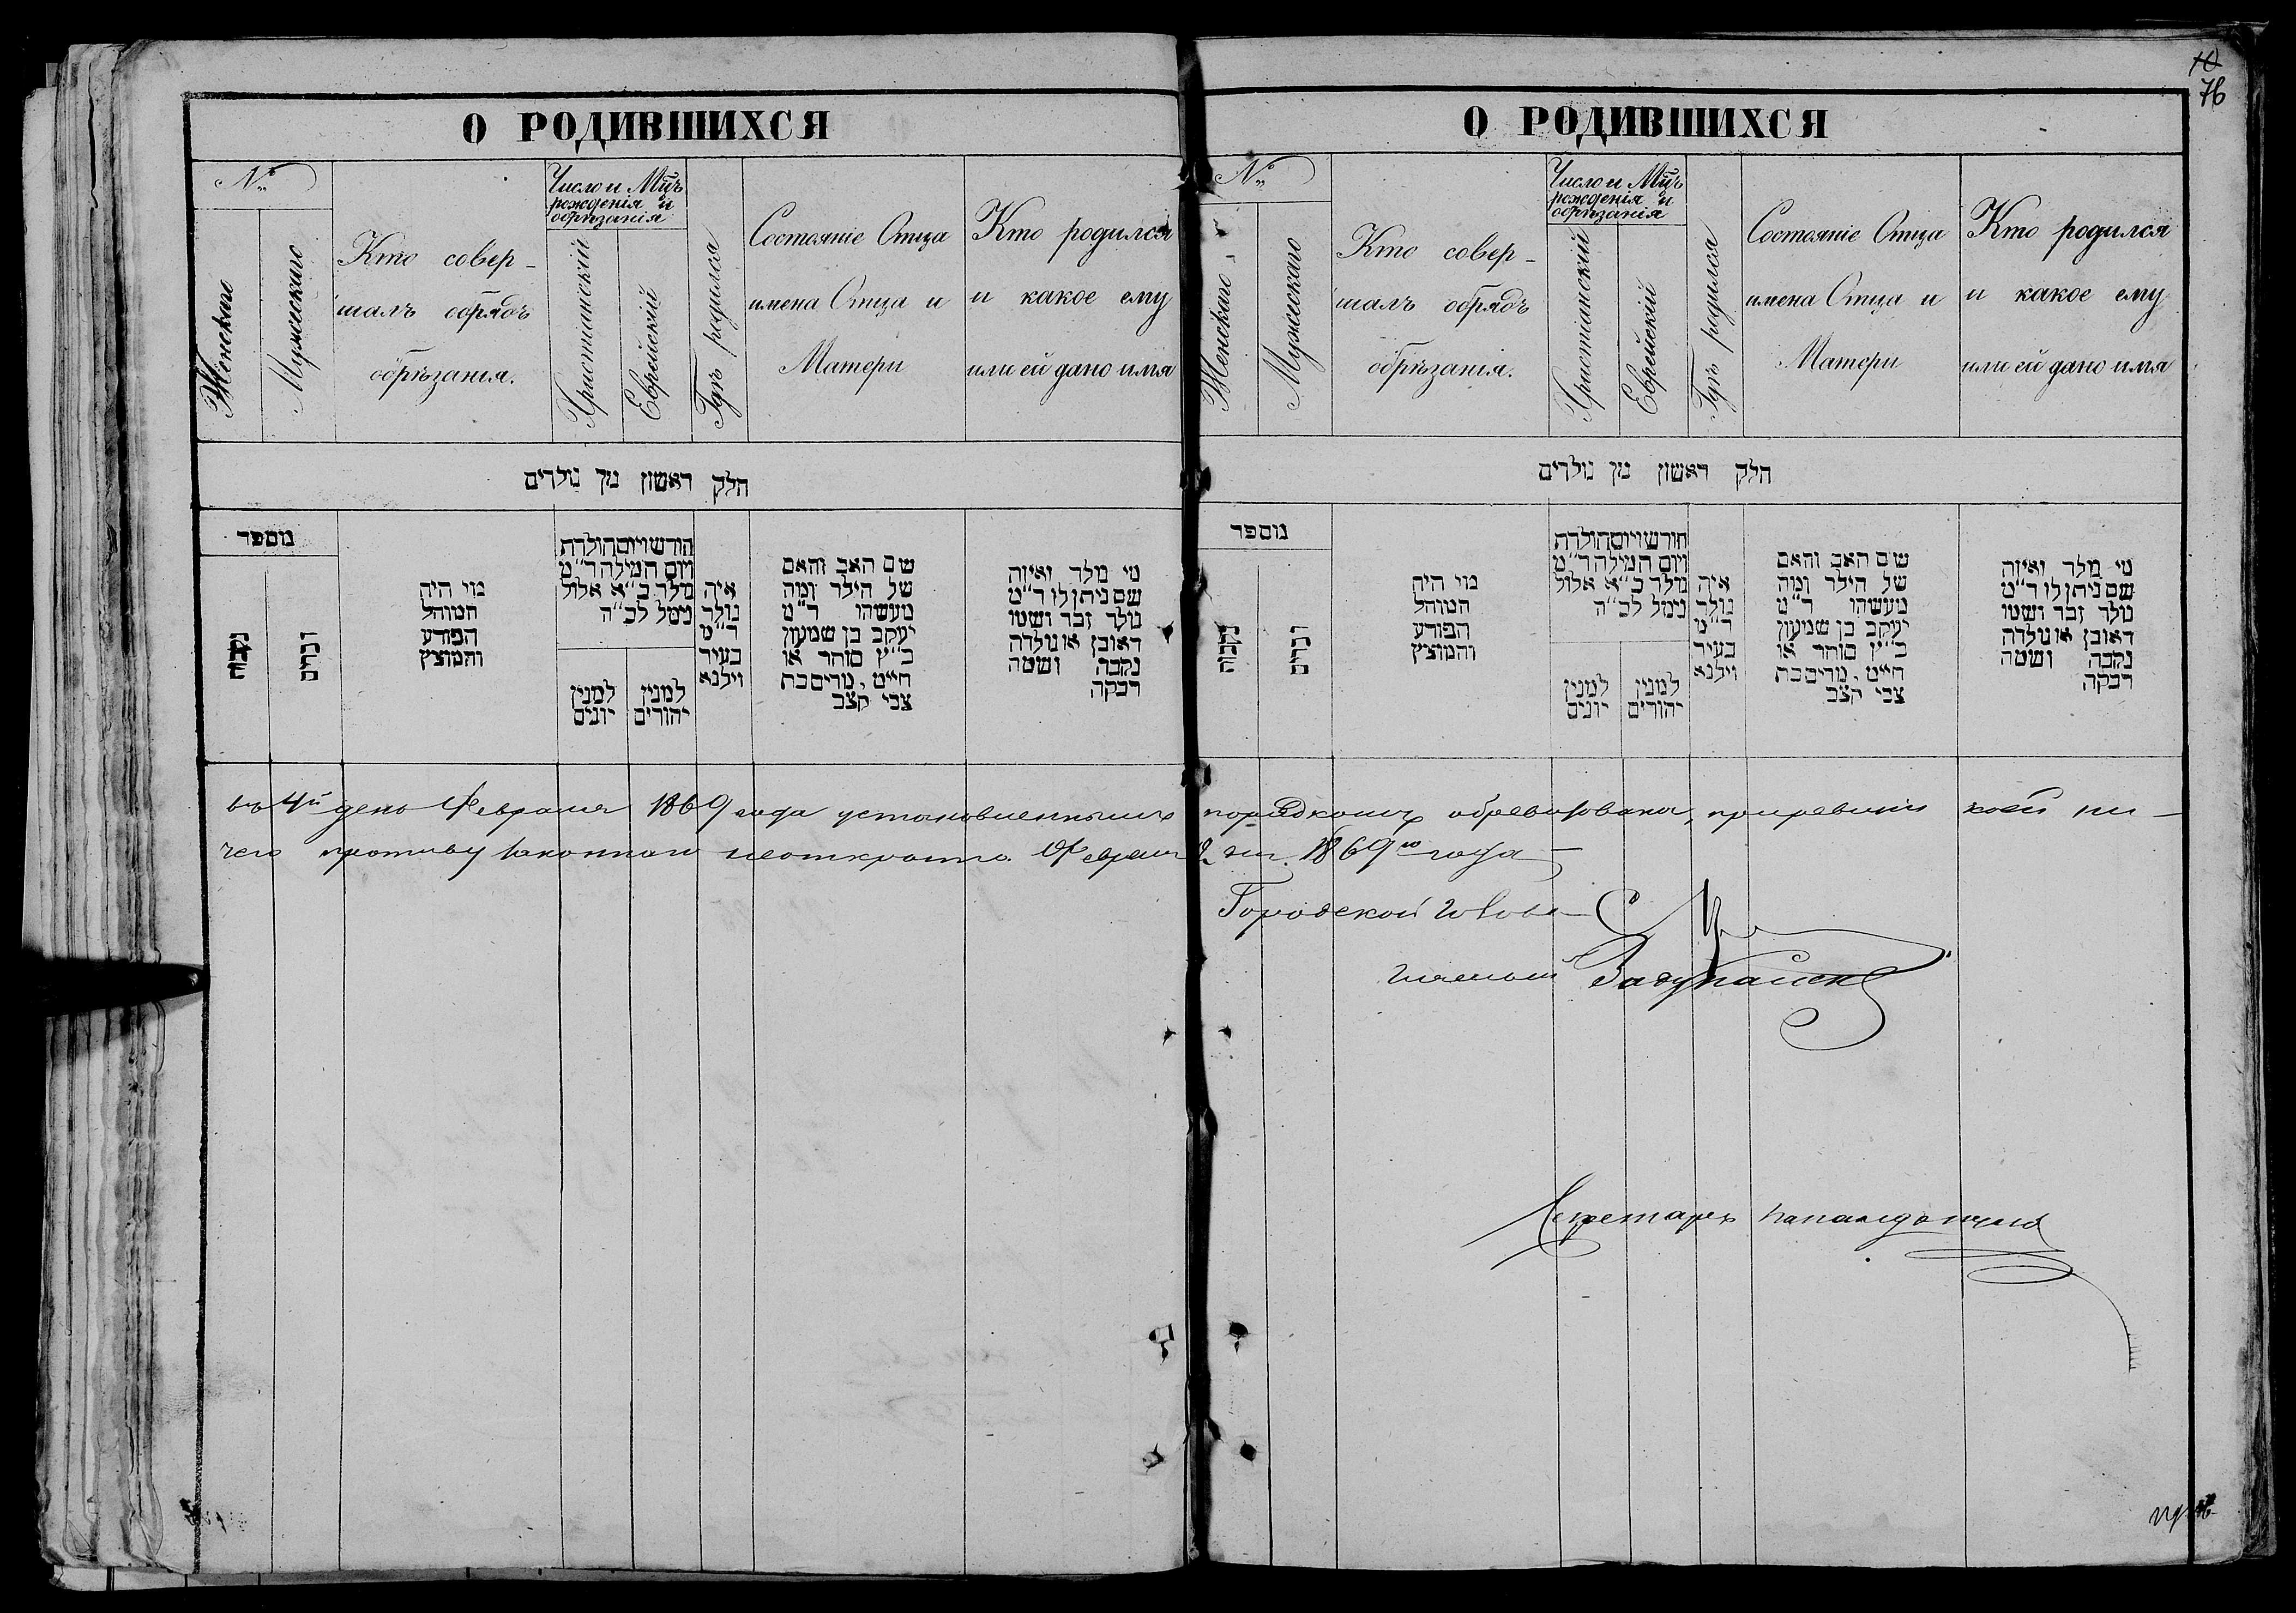 10
76
О РОДИВШИХСЯ
№
Женскаго
Мужескаго
Кто совер-
шалъ обрядъ
обрѣзанія.
Число и М-цъ
рожденія и
обрѣзанія
Христіанскій
Еврейскій
Гдѣ родился
Состояніе Отца
имена Отца и
Матери
Кто родился
и какое ему
или ей дано имя
חלק ראשון מן נולדים
נוספר
נקבה
זכרים
מי היה
המוהל
הפורע
והמוצץ
חודש ויום הולדת
ויום המילה ד"מ
נולד כ"א אלול
נימל לכ"ה
למנין
יונים
למנין
יהודים
איה
נולד
ד"מ
בעיר
וילנא
שם האב והאם
של הילד ומה
מעשהו ד"מ
יעקב בן שמעון
כ"ץ סוחר או
חייט, מרים בת
צבי קצב
מי נולד ואיזה
שם ניתן לו ד"מ
נולד זכר ושמו
ראובן או נולדה
נקבה ושמה
רבקה
О РОДИВШИХСЯ
№
Женскаго
Мужескаго
Кто совер-
шалъ обрядъ
обрѣзанія.
Число и М-цъ
рожденія и
обрѣзанія
Христіанскій
Еврейскій
Гдѣ родился
Состояніе Отца
имена Отца и
Матери
Кто родился
и какое ему
или ей дано имя
חלק ראשון מן נולדים
נוספר
נקבה
זכרים
מי היה
המוהל
הפורע
והמוצץ
חודש ויום הולדת
ויום המילה ד"מ
נולד כ"א אלול
נימל לכ"ה
למנין
יונים
למנין
יהודים
איה
נולד
ד"מ
בעיר
וילנא
שם האב והאם
של הילד ומה
מעשהו ד"מ
יעקב בן שמעון
כ"ץ סוחר או
חייט, מרים בת
צבי קצב
מי נולד ואיזה
שם ניתן לו ד"מ
נולד זכר ושמו
ראובן או נולדה
נקבה ושמה
רבקה
въ 4й день Февраля 1869 года установленнымъ порядкомъ обревизована, при ревизіи коей ни-
чего противу законнаго неоткрыто. Февраля дня 1869го года
Городской Голова
Гласный
Секретарь